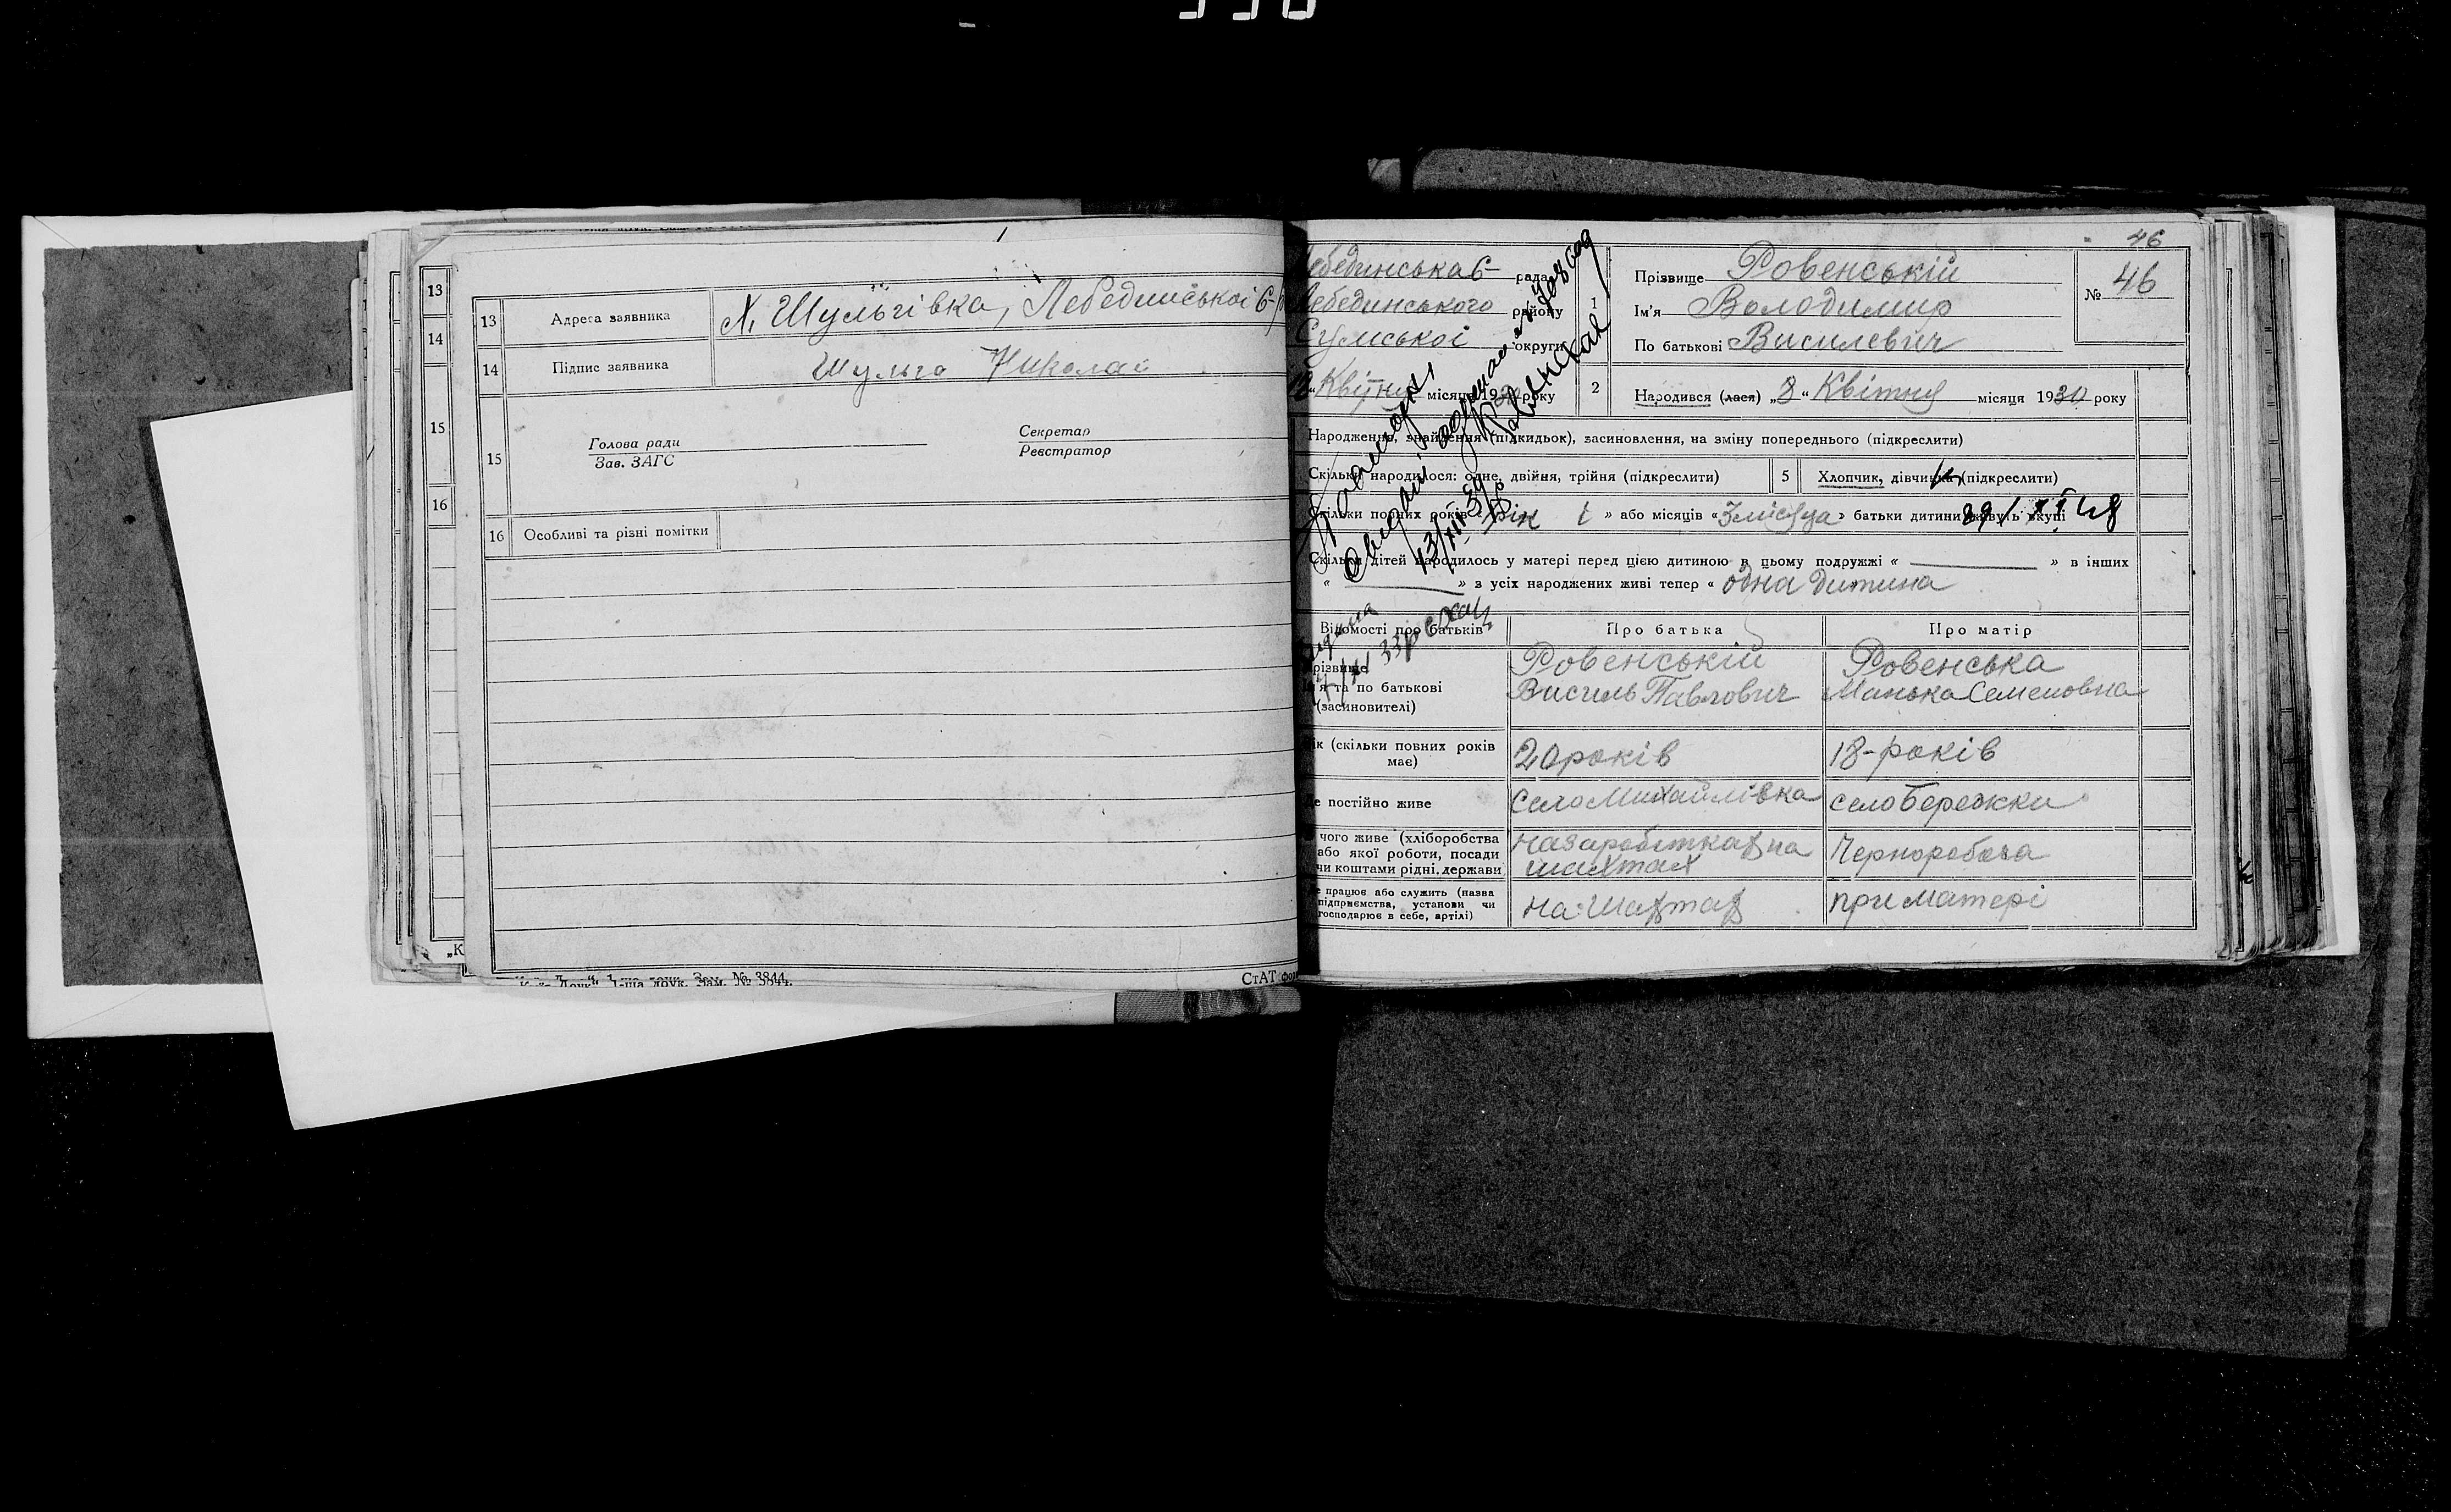 13
14
15
16
13 Адреса заявника Х. Шульгівка, Лебединської С-р
14 Підпис заявника Шульга Николай
15 Голова ради Секретар
Зав. ЗАГС Реєстратор
16 Особливі та різні помітки
Зам. № 3844.
СтАТ фор
46
ебединська С- рада
ебединського району
Сумської округи
Квітня місяця 19 року
1 Прізвище Ровенській
Ім'я Володимир
По батькові Василевич
№ 46
2 Народився (лася) „8" Квітня місяця 1930 року
Народження, знайдення (підкидьок), засиновлення, на зміну попереднього (підкреслити)
Скільки народилося: одне, двійня, трійня (підкреслити) 5 Хлопчик, дівчинка (підкреслити)
Скільки повних років « рік 1 » або місяців « 3 місяця » батьки дитини живуть вкупі
Скільки дітей народилось у матері перед цією дитиною в цьому подружжі « » в інших
« » з усіх народжених живі тепер « одна дитина
Відомості про батьків Про батька Про матір
різвище Ровенській Ровенська
я та по батькові Василь Павлович Манька Семеновна
(засиновителі)
ік (скільки повних років має) 20 років 18-років
е постійно живе Село Михайлівка село Бережки
чого живе (хліборобства або якої роботи, посади чи коштами рідні, держави на заробітках на шахтах Чернороboча
е працює або служить (назва підприємства, установи чи господарює в себе, артілі) на шахтах при матері